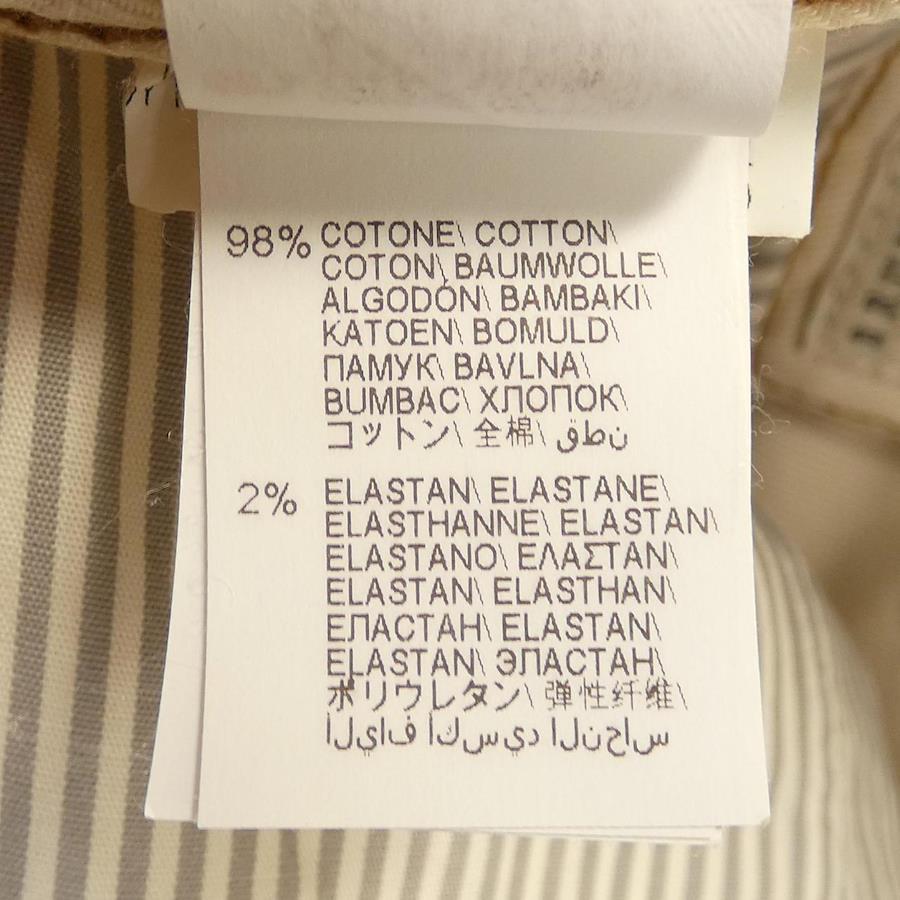 98% COTONE\ COTTON\
COTON\ BAUMWOLLE\
ALGODÓN\ BAMBAKI\
KATOEN\ BOMULD\
ПАМУК\ BAVLNA\
BUMBAC\ ХЛОПОК\
コットン\ 全棉\ قطن
2% ELASTAN\ ELASTANE\
ELASTHANNE\ ELASTAN\
ELASTANO\ ΕΛΑΣΤΑΝ\
ELASTAN\ ELASTHAN\
ЕЛАСТАН\ ELASTAN\
ELASTAN\ ЭЛАСТАН\
ポリウレタン\ 弹性纤维\
الياف اكسيد النحاس